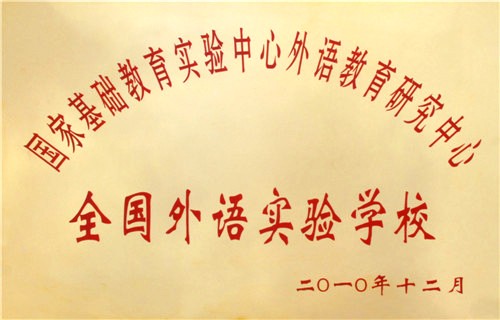 国家基础教育实验中心外语教育研究中心
全国外语实验学校
二〇一〇年十二月